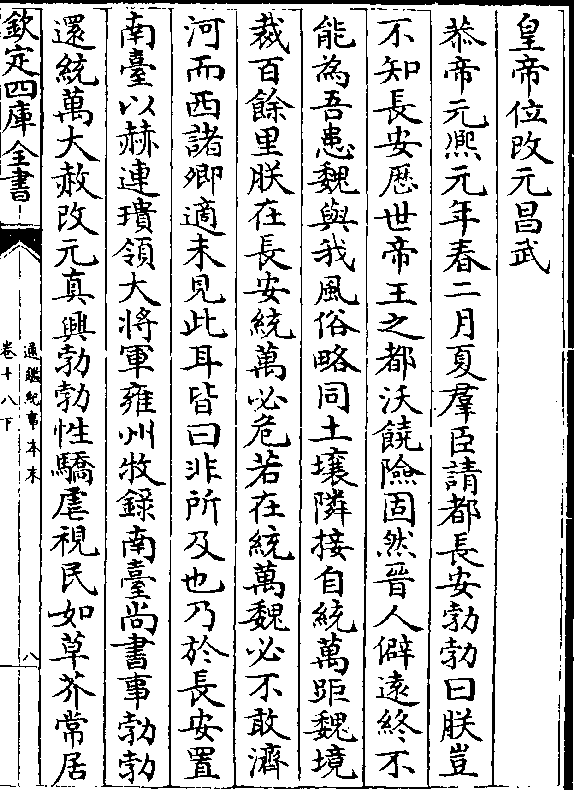 皇帝位改元昌武
恭帝元熈元年春二月夏羣臣請都長安勃勃曰朕豈
不知長安歴世帝王之都沃饒險固然晉人僻逺終不
能為吾患魏與我風俗略同土壤隣接自統萬距魏境
裁百餘里朕在長安統萬必危若在統萬魏必不敢濟
河而西諸卿適未見此耳皆曰非所及也乃於長安置
南臺以赫連璝領大将軍雍州牧録南臺尚書事勃勃
還統萬大赦改元真興勃勃性驕虐視民如草芥常居
欽定四庫全書
通鑑紀事本末
卷十八下
八